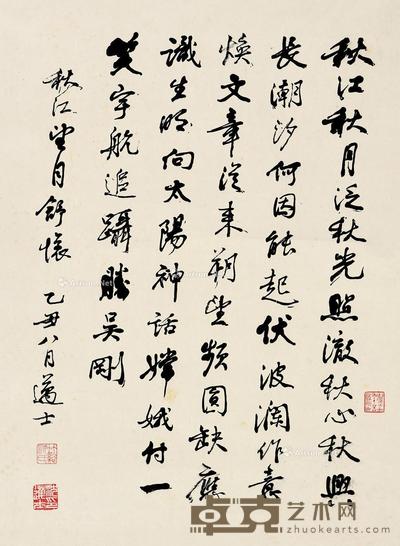 秋江秋月泛秋光照澈秋心秋興
長潮汐何因能起伏波瀾作意
煥文章從来朔望頻圓缺應
識生明向太陽神話嫦娥付一
笑宇航追躡勝吳剛
秋江望月舒懷 乙丑八月邁士
艺术网
zhuokearts.com